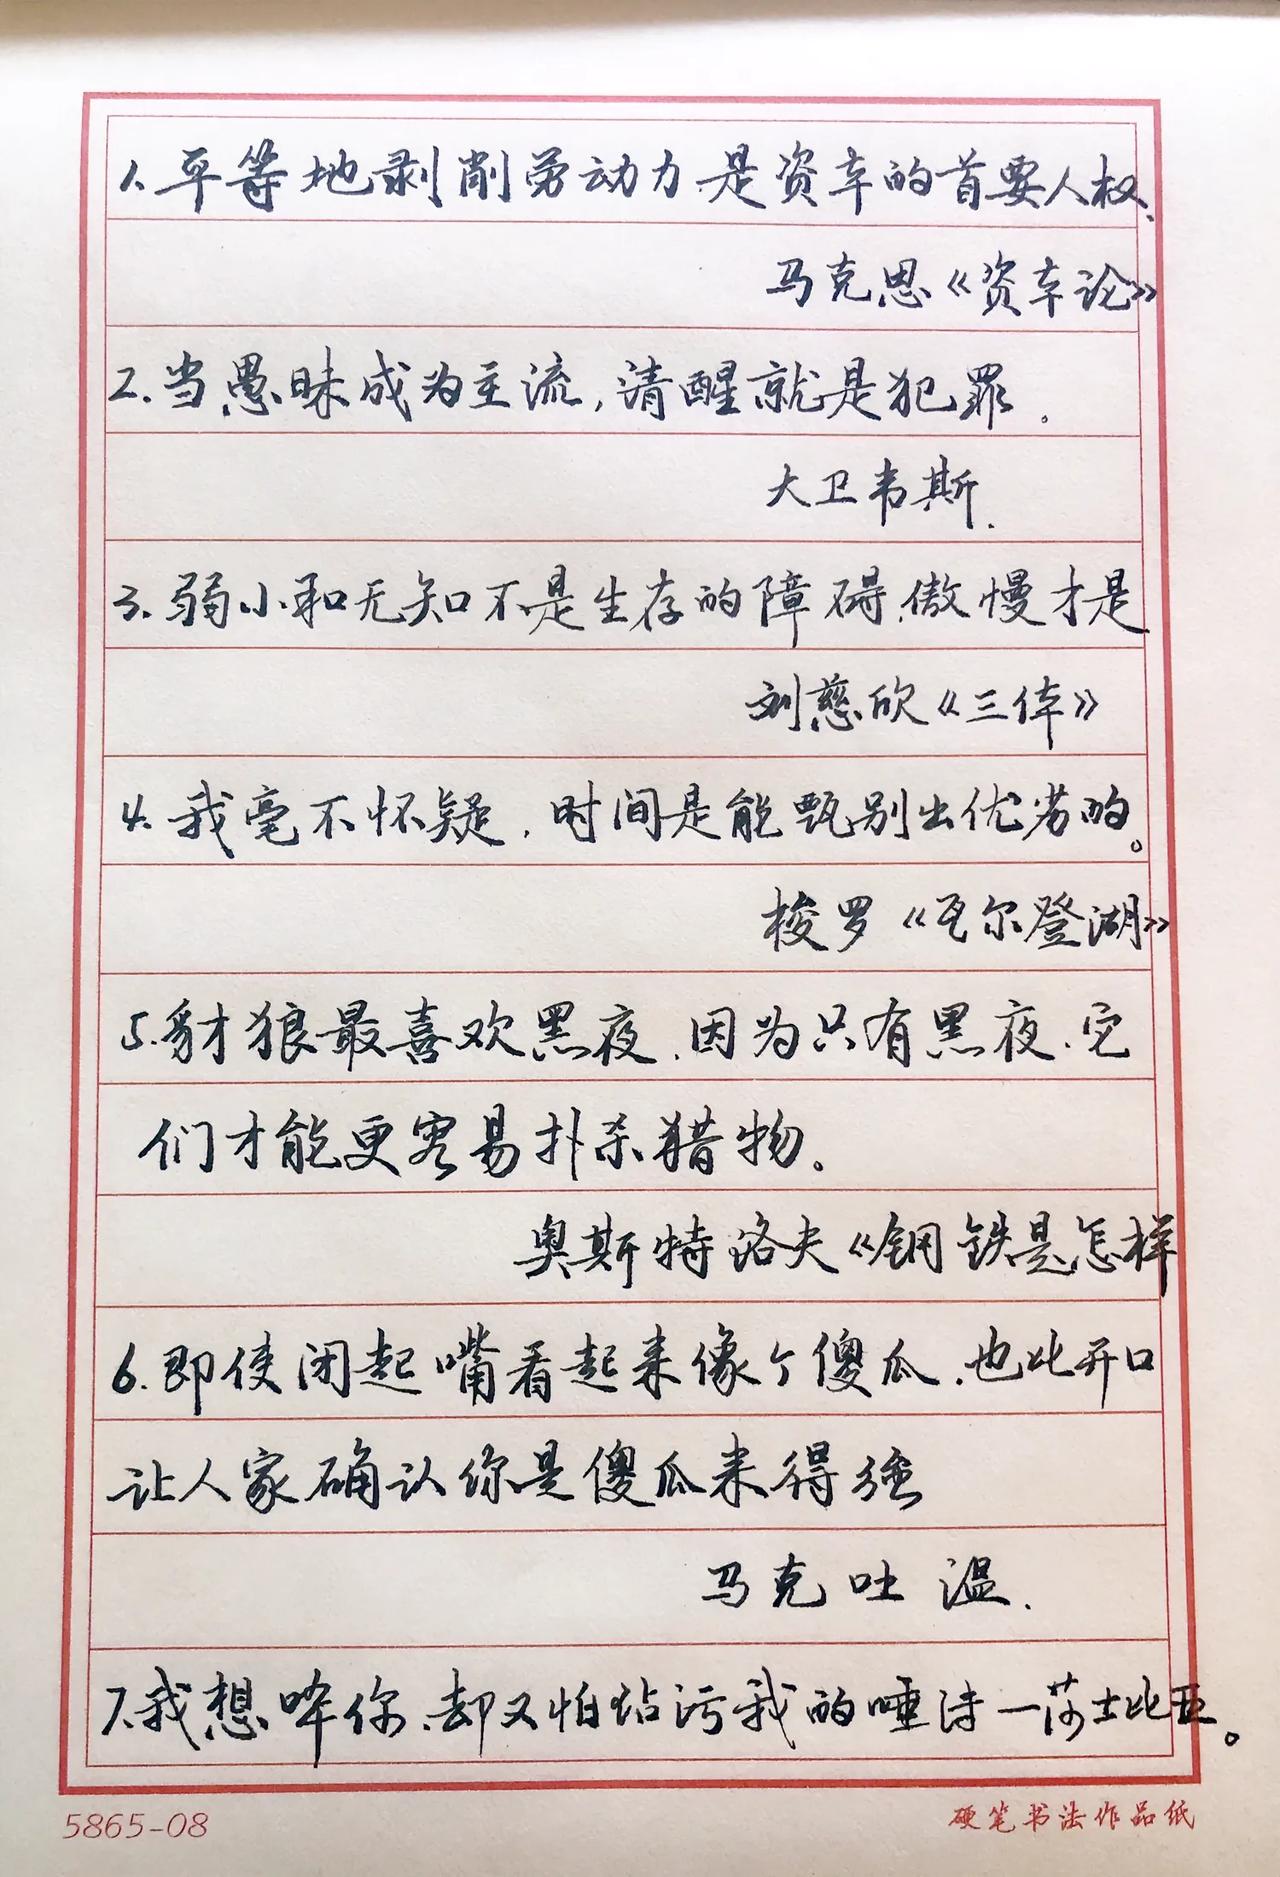 1.平等地剥削劳动力是资本的首要人权、
马克思《资本论》
2.当愚昧成为主流,清醒就是犯罪。
大卫韦斯.
3.弱小和无知不是生存的障碍,傲慢才是
刘慈欣《三体》
4.我毫不怀疑,时间是能甄别出优劣的。
梭罗《瓦尔登湖》
5.豺狼最喜欢黑夜,因为只有黑夜,它
们才能更容易扑杀猎物。
奥斯特洛夫《钢铁是怎样
6.即使闭起嘴看起来像个傻瓜,也比开口
让人家确认你是傻瓜来得强
马克吐温.
7.我想啐你、却又怕玷污我的唾沫一莎士比亚。
5865-08
硬笔书法作品纸